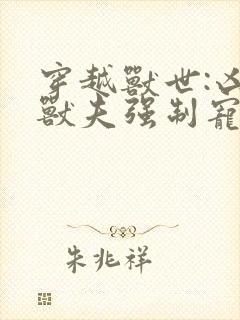 穿越獸世:凶
獸夫强制寵
朱兆祥